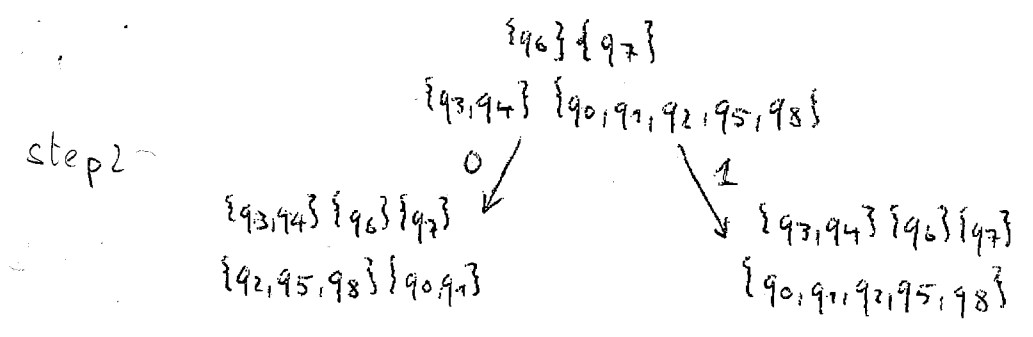 {q6} {q7}
{q3,q4} {q0,q1,q2,q5,q8}
step2
0
1
{q3,q4} {q6} {q7}
{q2,q5,q8} {q0,q1}
{q3,q4} {q6} {q7}
{q0,q1,q2,q5,q8}